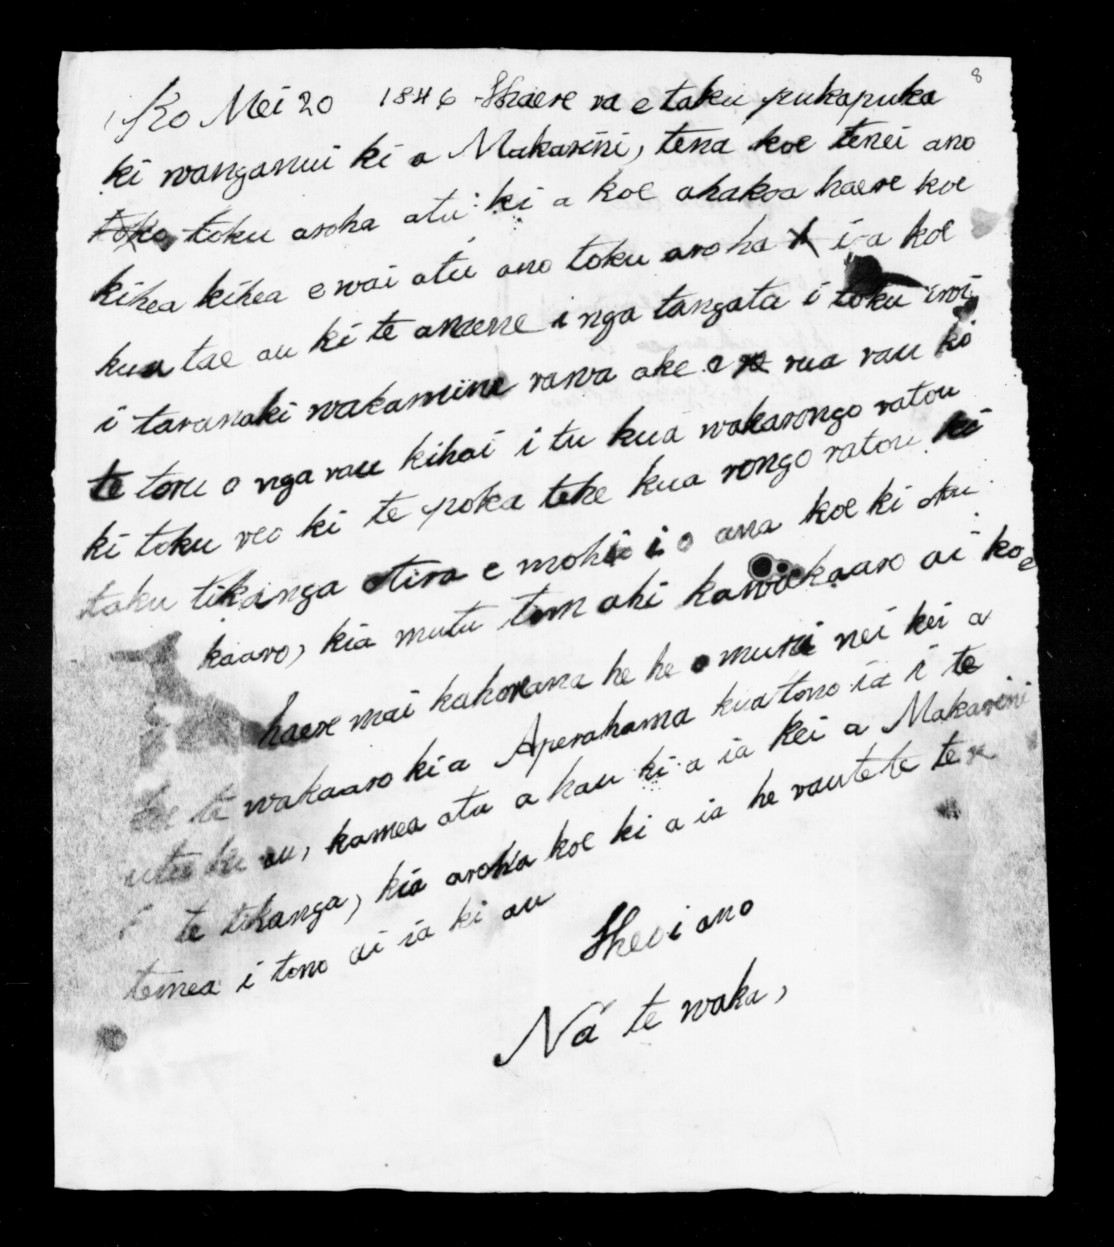 8
Ko Mei 20 1846 Haere ra e taku pukapuka
ki wanganui ki a Makarini, tena koe tenei ano
toku toku aroha atu ki a koe ahakoa haere koe
kihea kihea e wai atu ano toku aroha i a koe
kua tae au ki te amene i nga tangata i toku iwi
i taranaki wakamine rawa ake e rua rau ki
te toru o nga rau kihai i tu kua wakarongo ratou
ki toku reo ki te poka tehe kua rongo ratou ki
taku tikanga otira e mohio ana koe ki oku
kaaro, kia mutu tem ahi kawakaaro ai koe
haere mai kahorana he he o muri nei kei a
te wakaaro ki a Aperahama kua tono ia i te
utu ki au, kamea atu ahau ki a ia kei a Makarini
te tikanga, kia aroha koe ki a ia he rautete te
temea i tono ai ia ki au
Heoi ano
Na te waka,